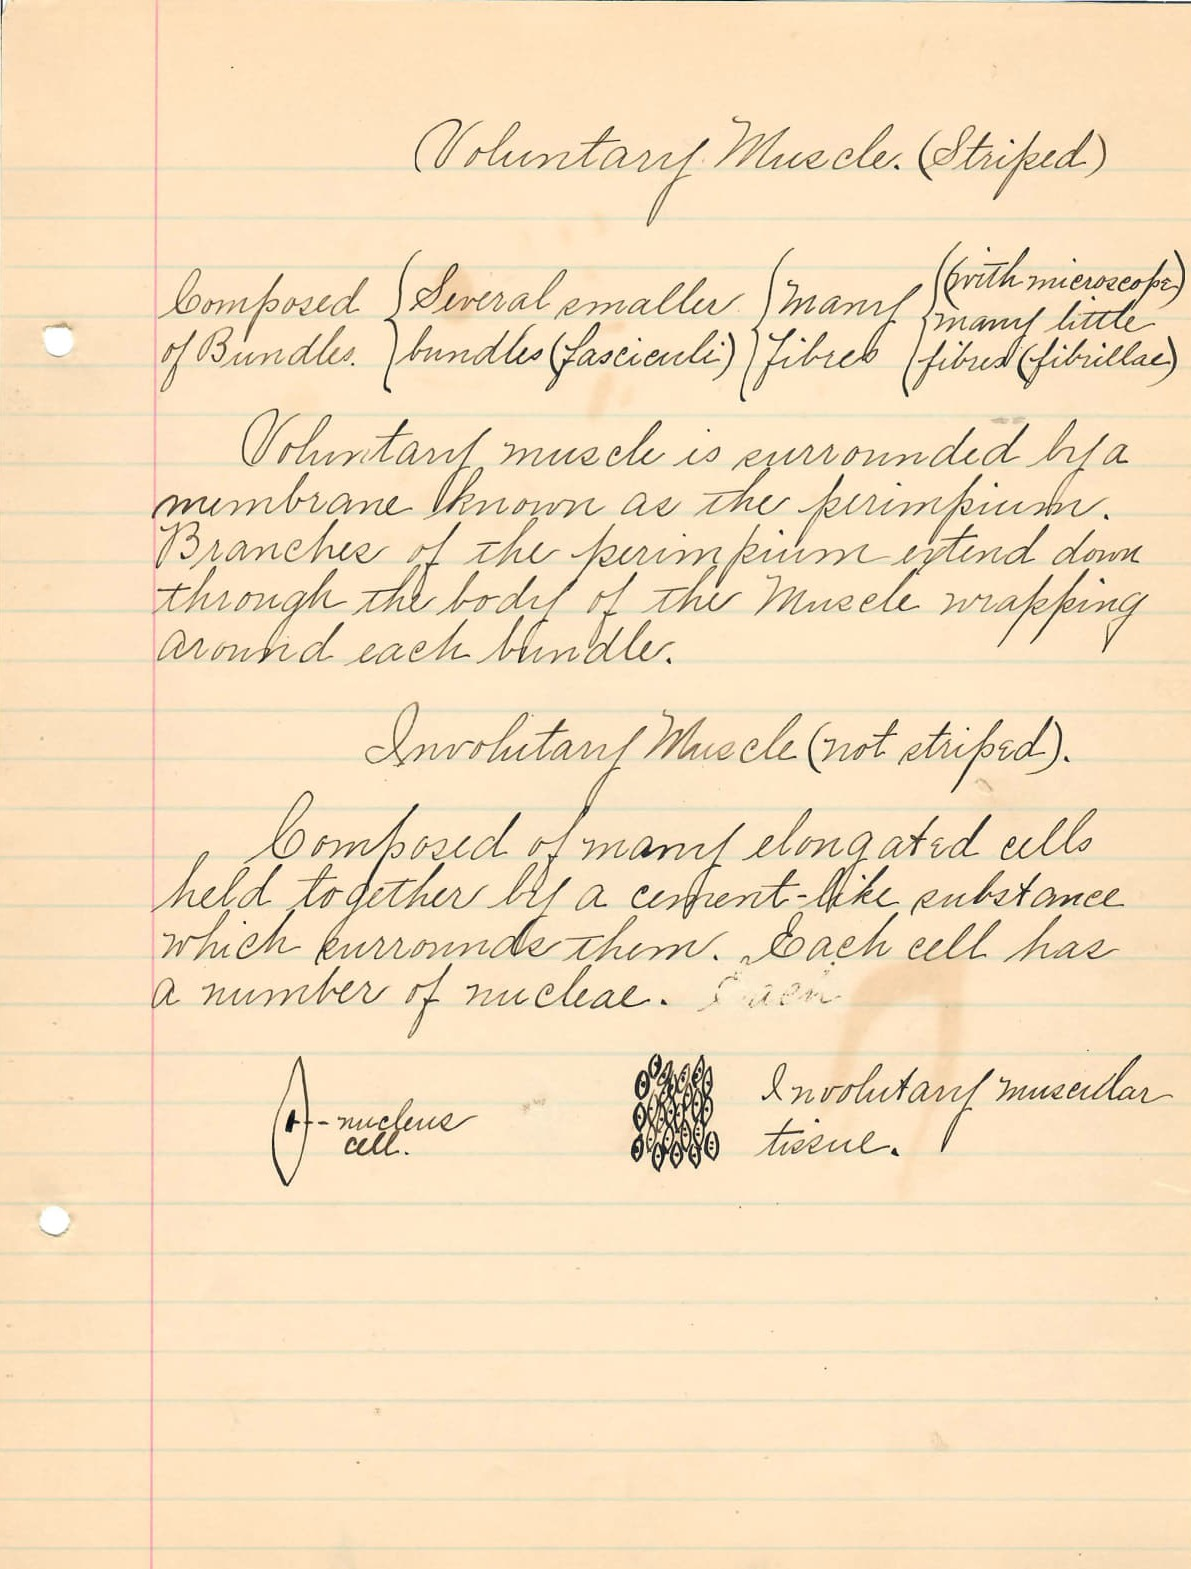 Voluntary Muscle. (Striped)
Composed { Several smaller { many { (with microscope)
of Bundles. { bundles (fasciculi) { fibres { many little
fibres (fibrillae)
Voluntary muscle is surrounded by a
membrane known as the perimpium.
Branches of the perimpium extend down
through the body of the Muscle wrapping
around each bundle.
Involutary Muscle (not striped).
Composed of many elongated cells
held together by a cement-like substance
which surrounds them. Each cell has
a number of nucleae. Each
- nucleus
cell.
Involutary muscular
tissue.